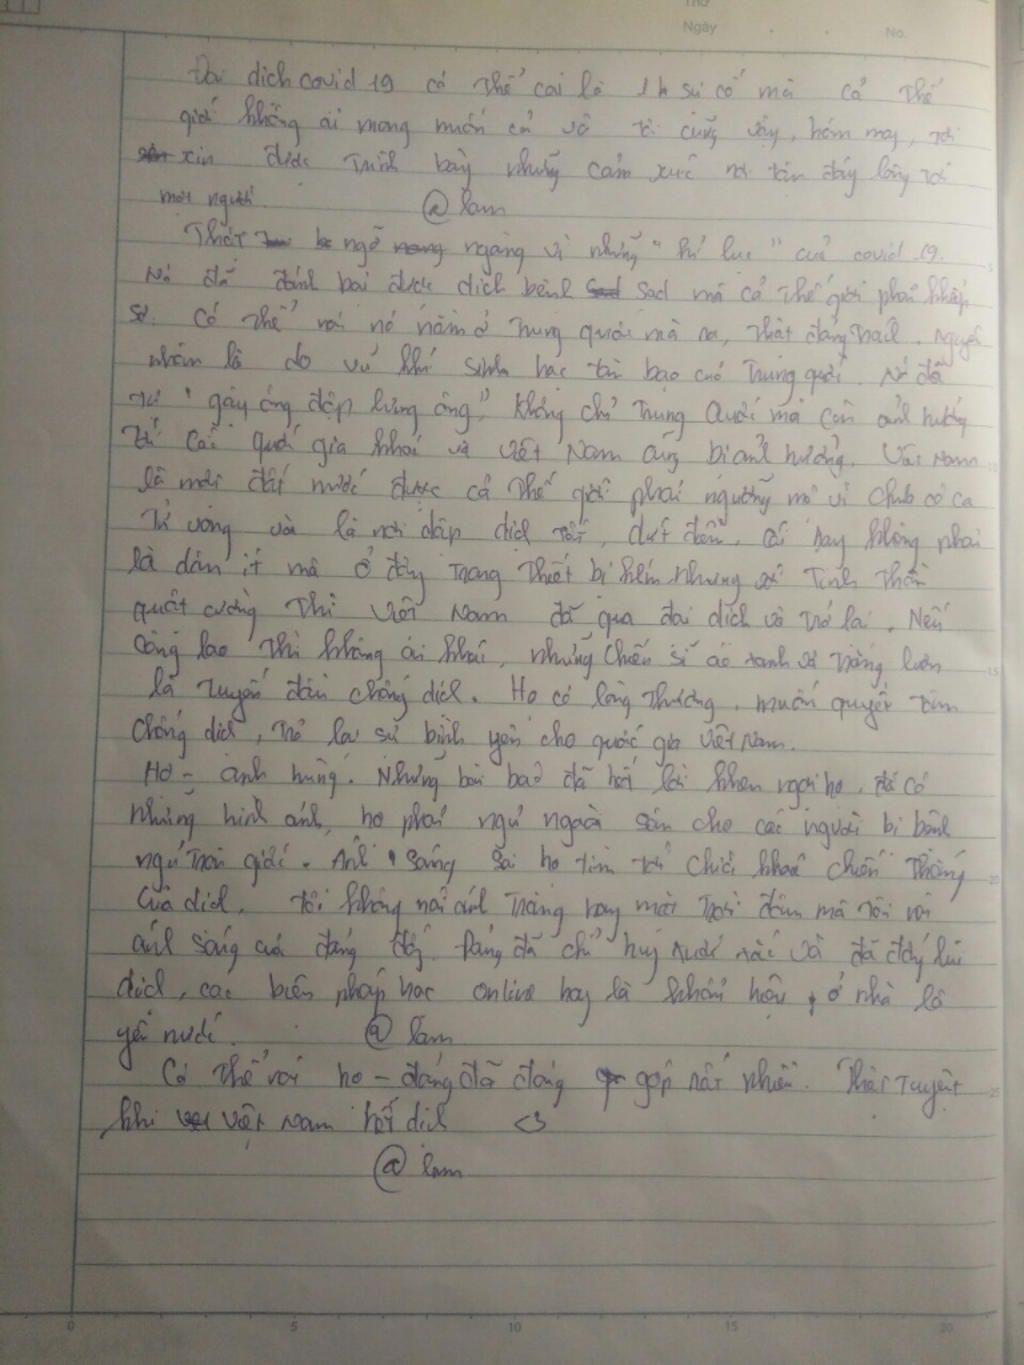 Thứ
Ngày No.
Đại dịch covid 19 có thể coi là 1 sự cố mà cả thế
giới không ai mong muốn cả và tôi cũng vậy, hôm nay, tôi
xin được trình bày những cảm xúc nơi tận đáy lòng tới
mọi người.
@ lam
Thật ngỡ ngàng vì những " " của covid 19.
Nó đã đánh bại được dịch bệnh mà cả thế giới phải khiếp
sợ. Có thể nói nó nằm ở Trung quốc mà ra, thật đáng trách. Nguyên
nhân là do vũ khí sinh học tàn bạo của Trung quốc. Nó đã
tự " gậy ông đập lưng ông", không chỉ Trung Quốc mà còn ảnh hưởng
tới các quốc gia khác và Việt Nam cũng bị ảnh hưởng. Việt Nam
là một đất nước được cả thế giới phải ngưỡng mộ vì chưa có ca
tử vong và là nơi dập dịch tốt, dứt điểm. hay không phải
là dân ít mà ở đây trang thiết bị kém nhưng tinh thần
quật cường thì Việt Nam đã qua đại dịch và trở lại. Nếu
công lao thì không ai khác, những chiến sĩ áo xanh và trắng luôn
là tuyến đầu chống dịch. Họ có lòng thương, muốn quyết tâm
chống dịch, trả lại sự bình yên cho quốc gia Việt Nam.
Họ - anh hùng. Những bài báo đã hết lời khen ngợi họ, đã có
những hình ảnh, họ phải ngủ ngoài sân cho các người bị bệnh
ngủ trên giường. Ánh sáng họ tìm tới chiến thắng
của dịch. Tôi không nói ánh trăng hay mặt trời đâu mà tôi nói
ánh sáng của đảng đấy. Đảng đã chỉ huy nước và đã đẩy lùi
dịch, các biện pháp học online hay là khẩu hiệu, ở nhà là
yêu nước.
@ lam
Có thể nói họ - đảng đã đóng góp rất nhiều. Thật tuyệt
khi Việt Nam hết dịch <3
@ lam
0 5 10 15 20